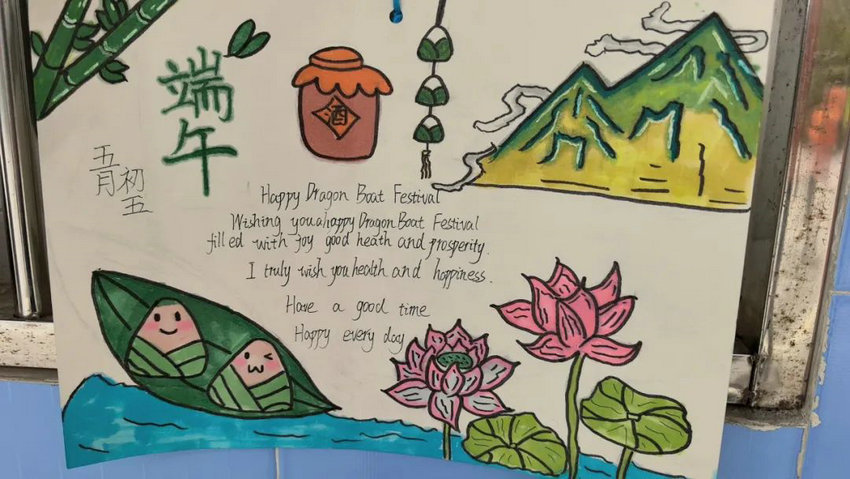 端午
五月
初五
酒
Happy Dragon Boat Festival
Wishing you a happy Dragon Boat Festival
filled with joy good heath and prosperity.
I truly wish you health and happiness.
Have a good time
Happy every day